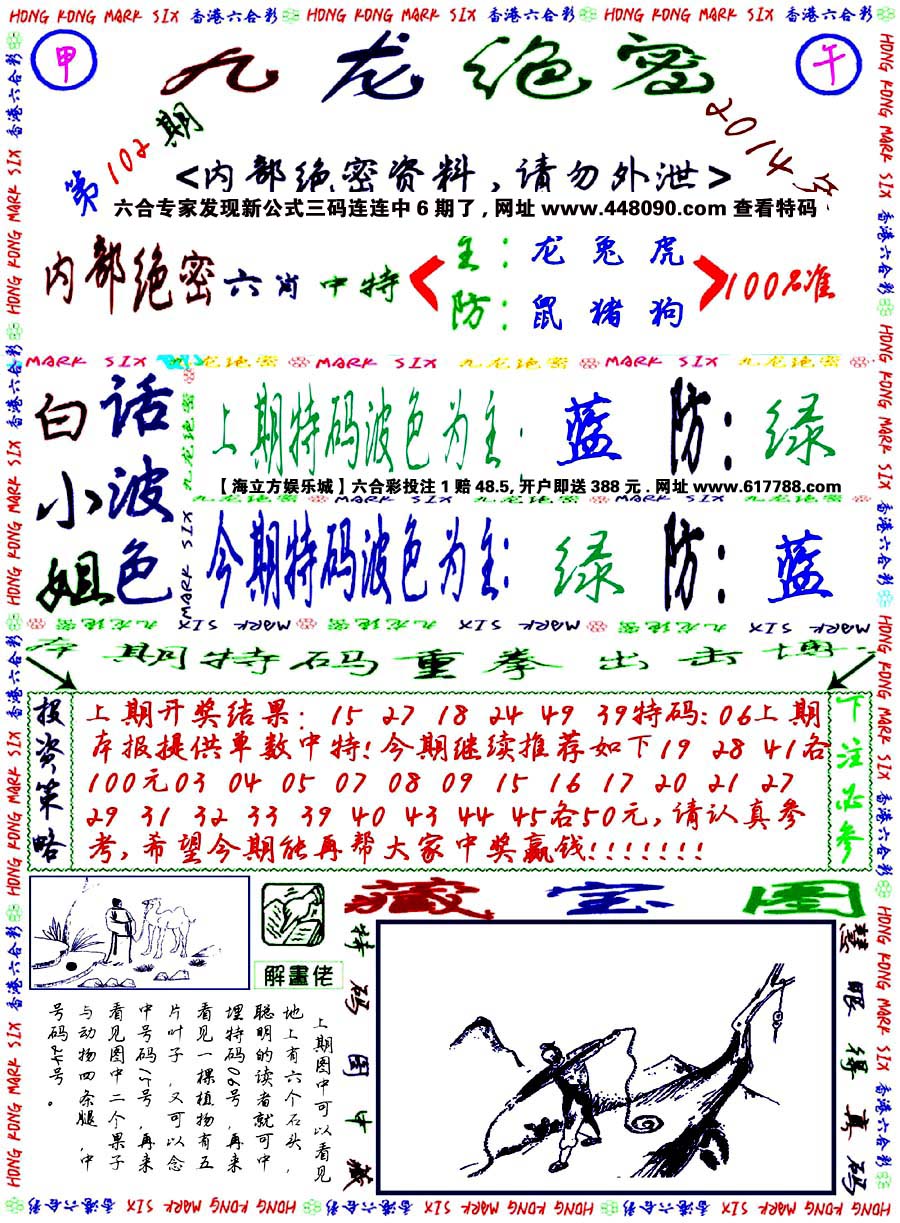 HONG KONG MARK SIX 香港六合彩 HONG KONG MARK SIX 香港六合彩 HONG KONG MARK SIX 香港六合彩
甲
九龙绝密
午
第102期
2014年
<内部绝密资料,请勿外泄>
六合专家发现新公式三码连连中6期了,网址 www.448090.com 查看特码
内部绝密六肖中特
主:龙兔虎
防:鼠猪狗
100%准
MARK SIX 九龙绝密 MARK SIX 九龙绝密 MARK SIX 九龙绝密
白小姐
话波色
上期特码波色为主:蓝 防:绿
【海立方娱乐城】六合彩投注1赔48.5,开户即送388元.网址 www.617788.com
今期特码波色为主:绿 防:蓝
本期特码重拳出击博
投资策略
上期开奖结果:15 27 18 24 49 39特码:06上期
本报提供单数中特!今期继续推荐如下19 28 41各
100元03 04 05 07 08 09 15 16 17 20 21 27
29 31 32 33 39 40 43 44 45各50元,请认真参
考,希望今期能再帮大家中奖赢钱!!!!!!!
下注必参
藏宝图
解畫佬
上期图中可以看见
地上有六个石头,
聪明的读者就可中
埋特码06号,再来
看见一棵植物有五
片叶子,又可以念
中号码15号,再来
看见图中二个果子
与动物四条腿,中
号码24号。
特码图中藏
慧眼得真码